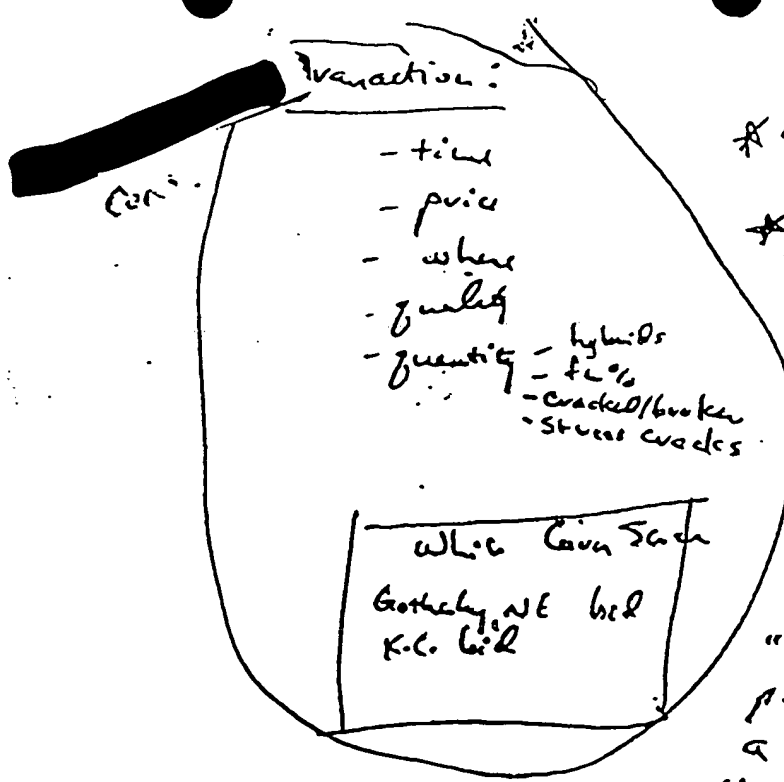 Tranaction:
- time
- price
- where
- quality
- quantity - hybrids
- fm%
- cracked/broken
- stress cracks
White
Gothenburg, NE bid
K.C. bid
"